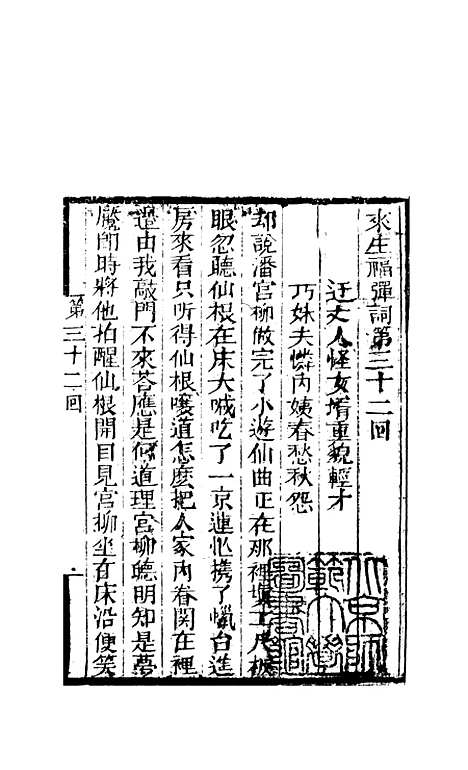 來生福彈詞第三十二回
迂丈人怪女壻重貌輕才
巧姝夫憐內姨春愁秋怨
却說潘宮柳做完了小遊仙曲正在那裡填工尺板
眼忽聽仙根在床大喊吃了一京連忙携了蠟台進
房來看只所得仙根嚷道怎麽把人家內眷関在裡
邉由我敲門不來荅應是何道理宮柳聴明知是夢
魘即時將他拍醒仙根開目見宮柳坐在床沿便笑
第三十二回
一
北京師範大學圖書館